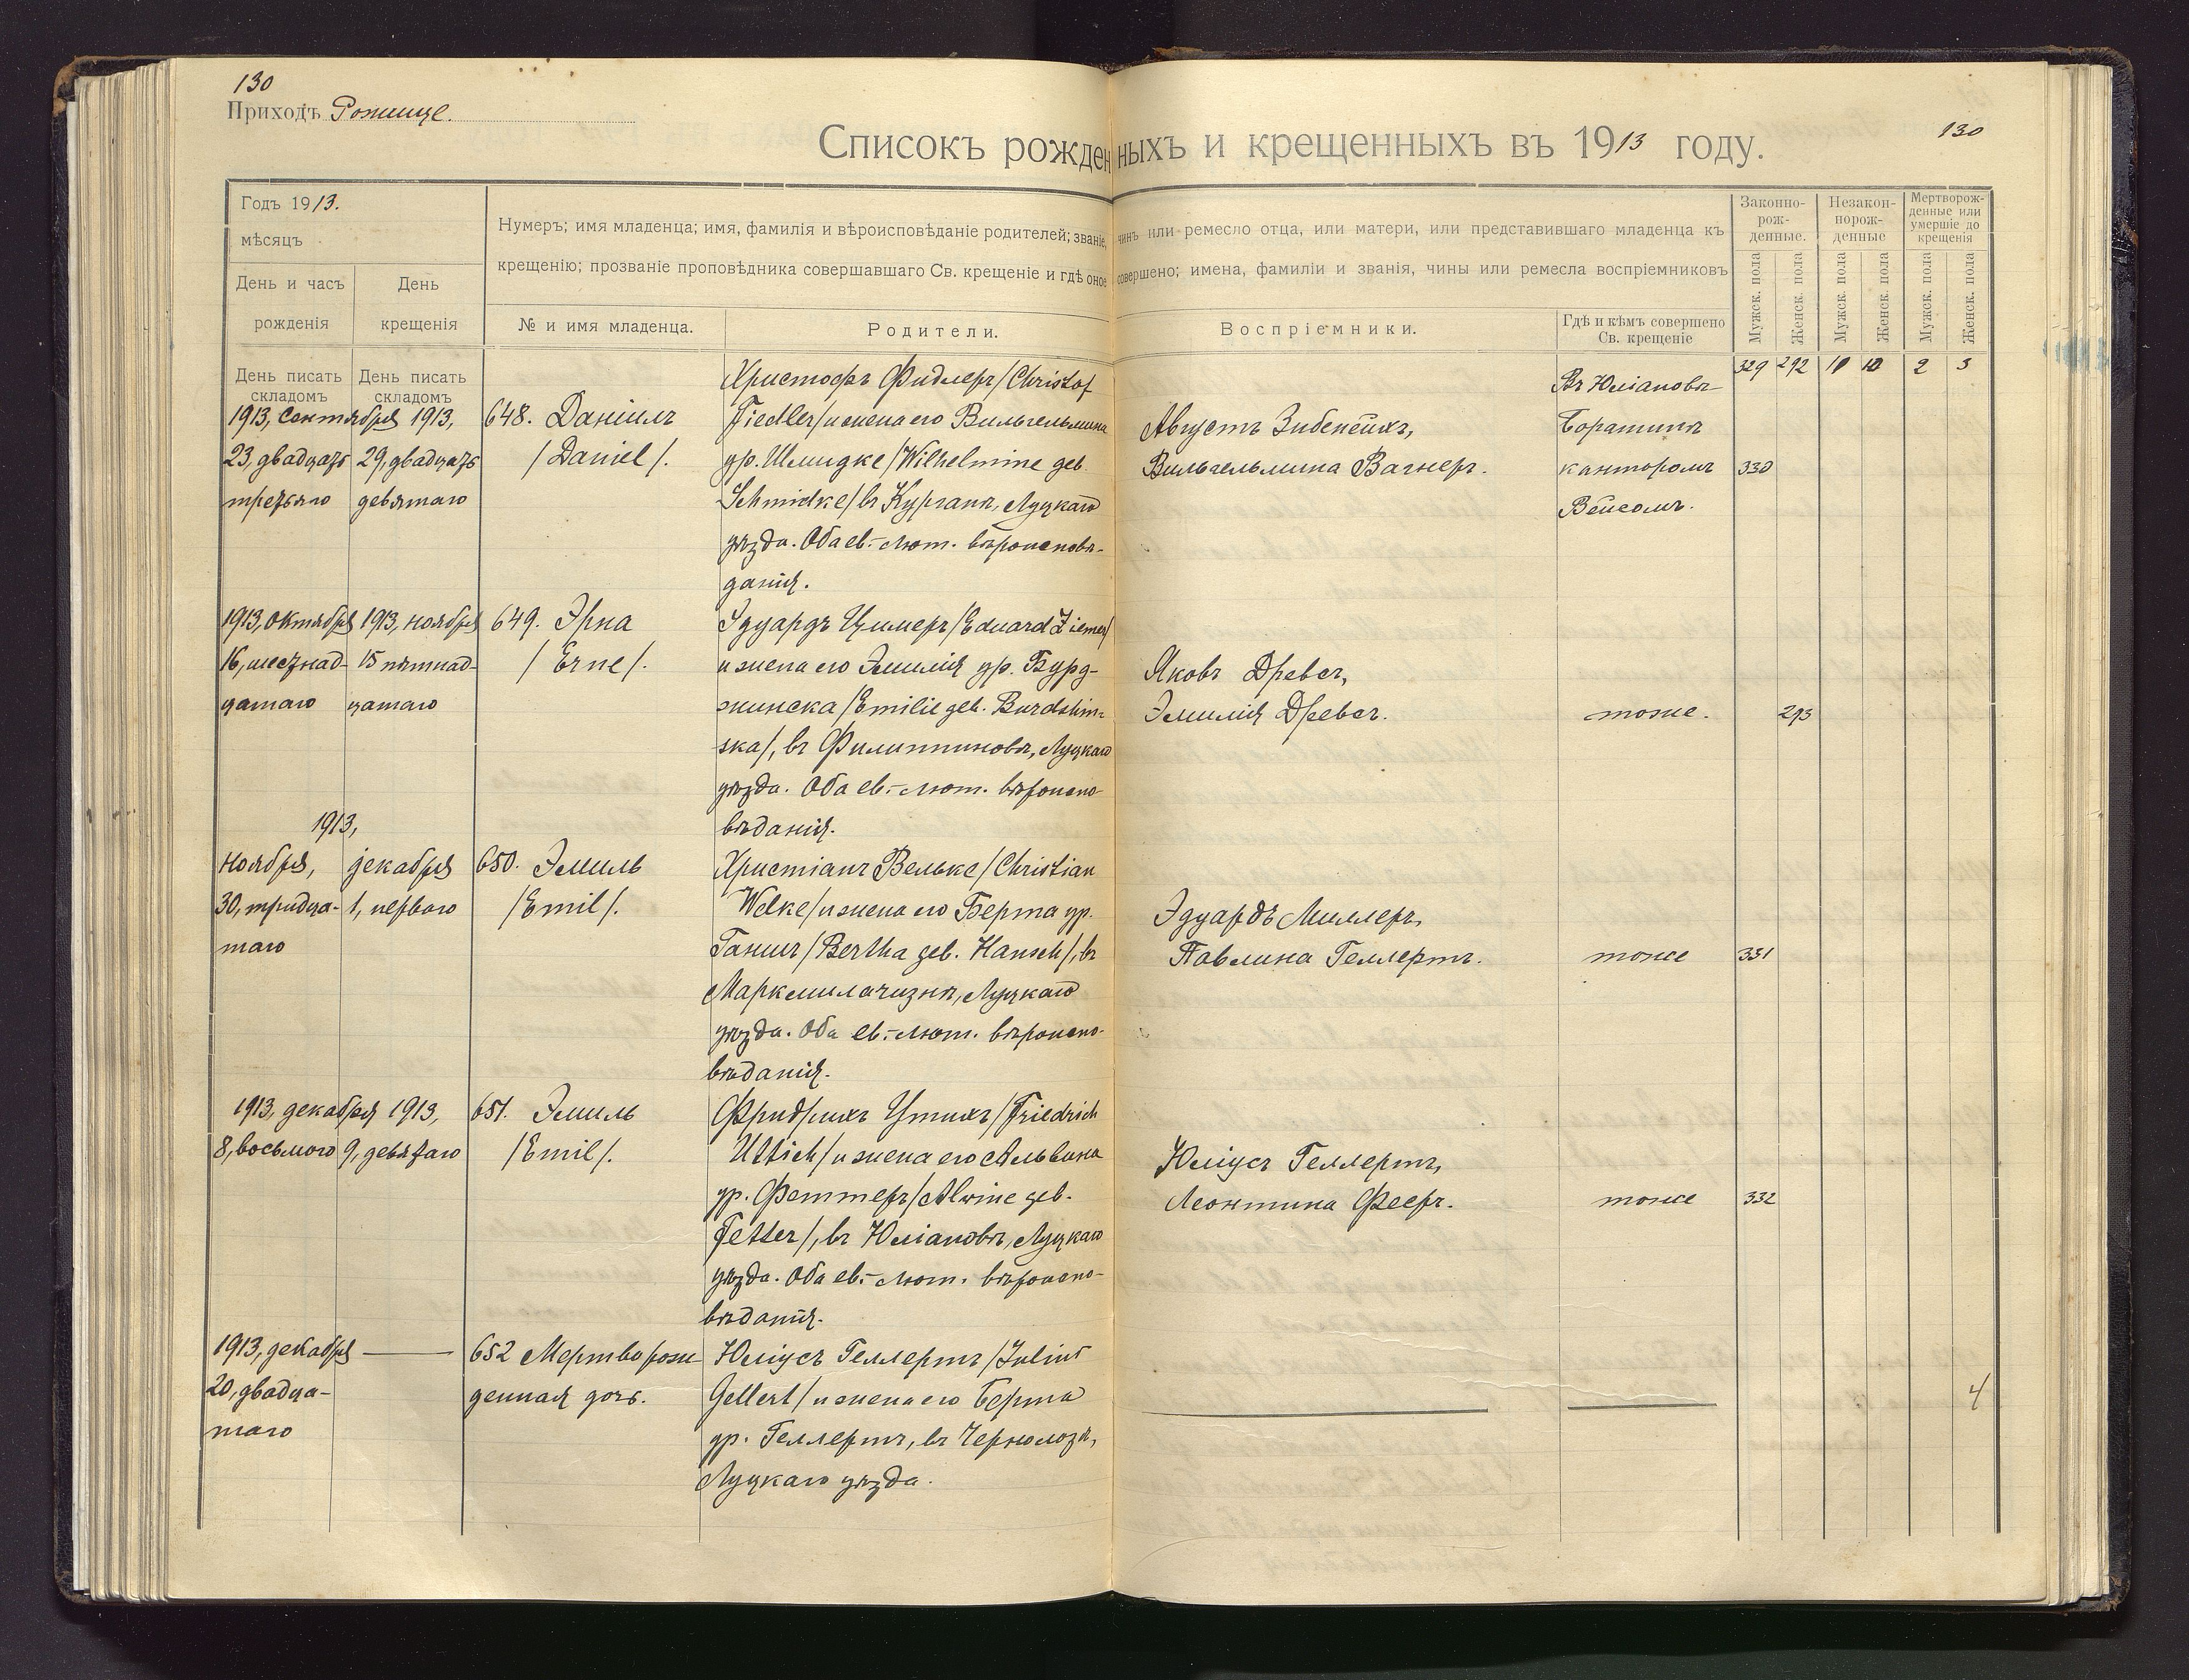 130
Приходъ Рожище.
Списокъ рожденныхъ и крещенныхъ въ 1913 году.
130
Годъ 1913.
мѣсяцъ
День и часъ рожденія
День крещенія
Нумеръ; имя младенца; имя, фамилія и вѣроисповѣданіе родителей; званіе, чинъ или ремесло отца, или матери, или представившаго младенца къ
крещенію; прозваніе проповѣдника совершавшаго Св. крещеніе и гдѣ оное совершено; имена, фамиліи и званія, чины или ремесла воспріемниковъ
№ и имя младенца.
Родители.
Воспріемники.
Гдѣ и кѣмъ совершено
Св. крещеніе
Законно-
рож-
денные.
Незакон-
норож-
денные
Мертворож-
денные или
умершіе до
крещенія
Мужск. пола
Женск. пола
Мужск. пола
Женск. пола
Мужск. пола
Женск. пола
День писать
складомъ
День писать
складомъ
329 292 10 10 2 3
1913, Сентября 1913,
23, двадцать 29, двадцать
третьяго девятаго
648. Даніилъ
/Daniel/.
Христофъ Фидлеръ /Christof
Fiedler/ и жена его Вильгельмина
ур. Шмидке /Wilhelmine geb.
Schmidke/ въ Курганѣ, Луцкаго
уѣзда. Оба ев.-лют. вѣроисповѣ-
данія.
Августъ Зибенейхъ,
Вильгельмина Вагнеръ.
Въ Юліановѣ
Боратинѣ
канторомъ
Вейсомъ.
330
1913, Октября 1913, ноября
16, шестнад- 15 пятнад-
цатаго цатаго
649. Эрна
/Erne/.
Эдуардъ Цимеръ /Eduard Ziemer/
и жена его Эмилія ур. Бурд-
жинска /Emilie geb. Burdshin-
ska/, въ Филипиновѣ, Луцкаго
уѣзда. Оба ев.-лют. вѣроиспо-
вѣданія.
Яковъ Древсъ,
Эмилія Древсъ.
тоже.
293
1913,
Ноября, декабря
30, тридца- 1, перваго
таго
650. Эмиль
/Emil/.
Христіанъ Вельке /Christian
Welke/ и жена его Берта ур.
Ганшъ /Bertha geb. Hansch/, въ
Маркмилачизнѣ, Луцкаго
уѣзда. Оба ев.-лют. вѣроиспо-
вѣданія.
Эдуардъ Миллеръ,
Павлина Геллертъ.
тоже
331
1913, декабря 1913,
8, восьмого 9, девятаго
651. Эмиль
/Emil/.
Фридрихъ Уттихъ /Friedrich
Uttich/ и жена его Альвина
ур. Феттеръ /Alwine geb.
Fetter/, въ Юліановѣ, Луцкаго
уѣзда. Оба ев.-лют. вѣроиспо-
вѣданія.
Юліусъ Геллертъ,
Леонтина Фееръ.
тоже
332
1913, декабря
20, двадца-
таго
652 Мертворож-
денная дочь.
Юліусъ Геллертъ /Julius
Gellert/ и жена его Берта
ур. Геллертъ, въ Чернолозѣ,
Луцкаго уѣзда.
4